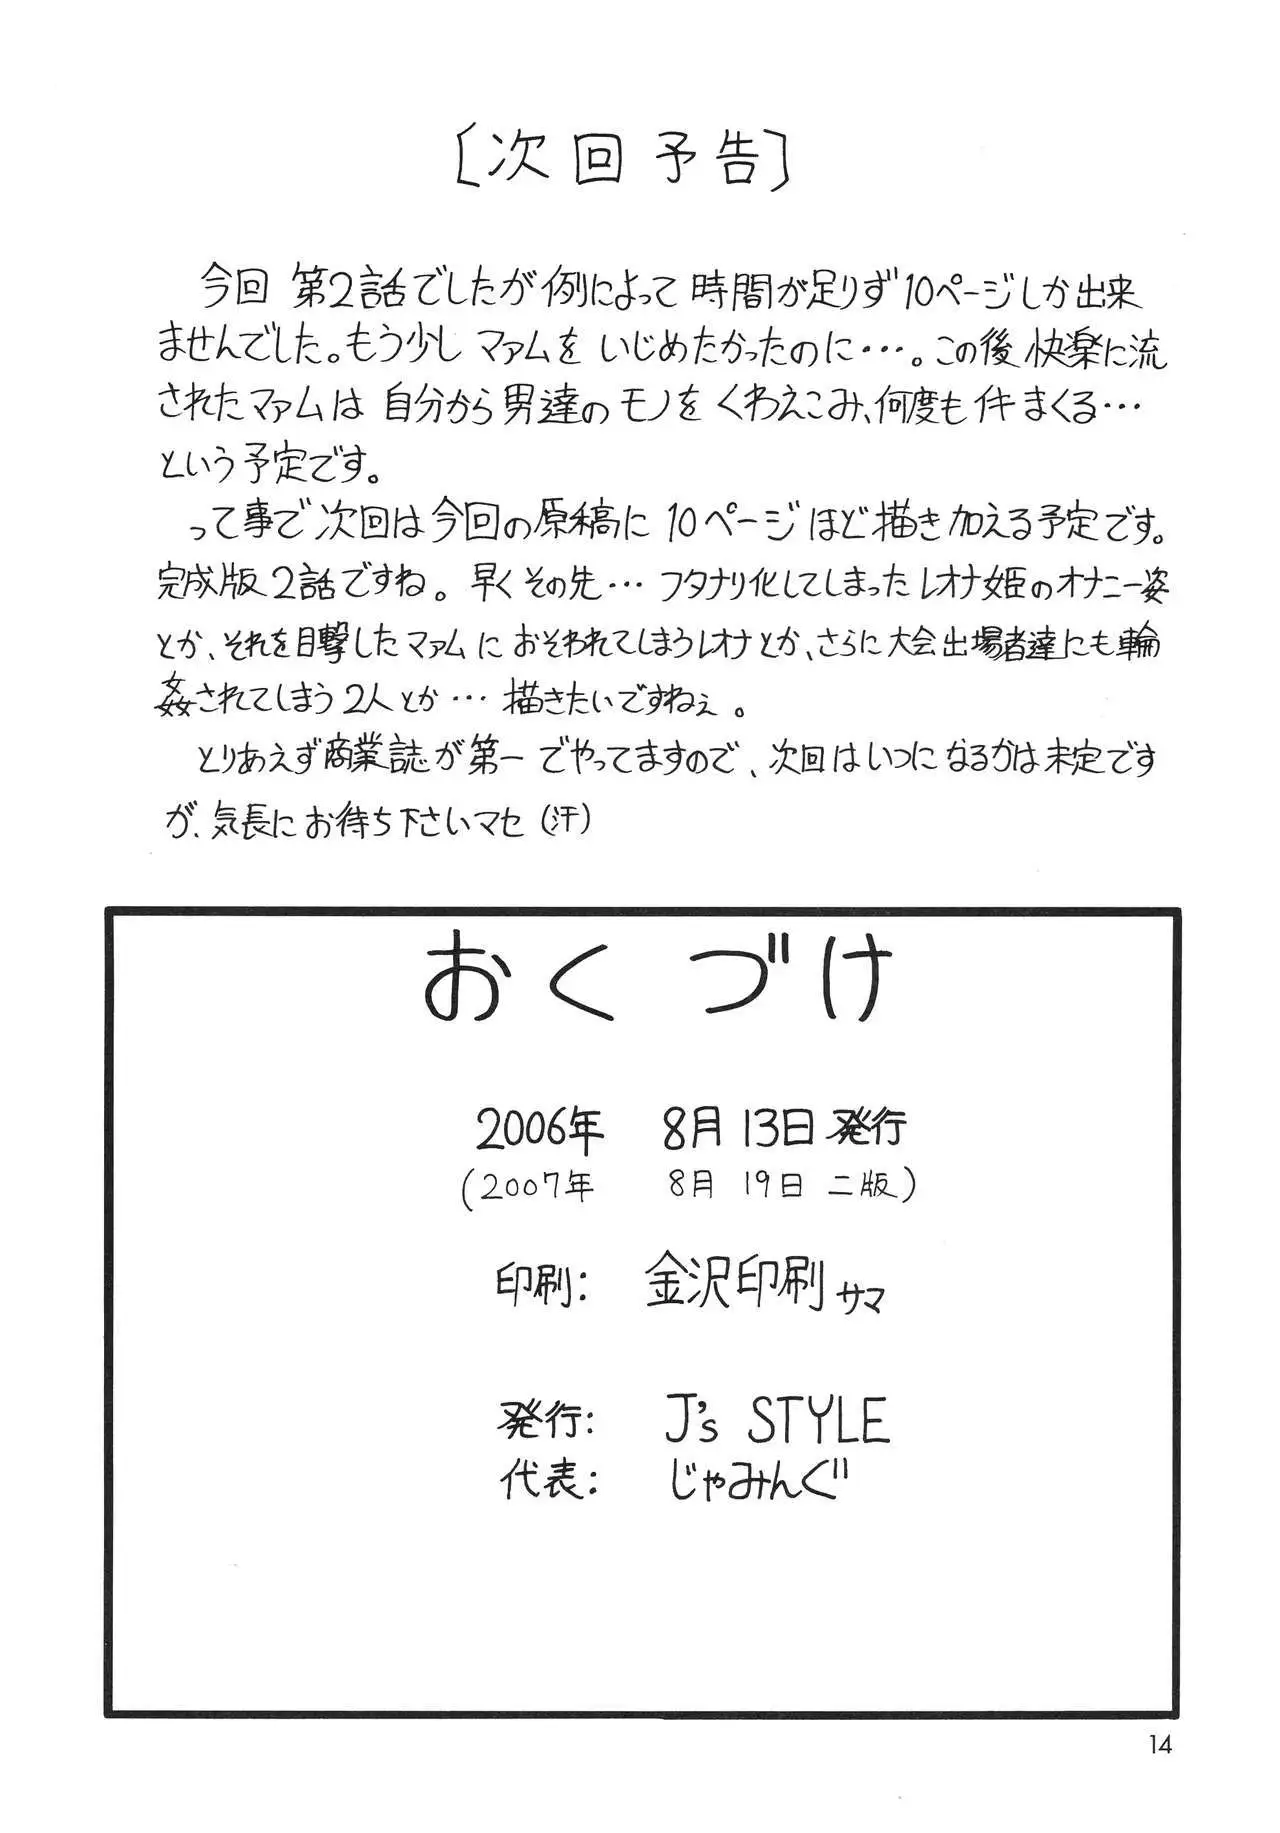 [次回予告]
今回 第2話でしたが例によって時間が足りず10ページしか出来
ませんでした。もう少し マァムを いじめたかったのに・・・。この後 快楽に流
されたマァムは 自分から男達のモノを くわえこみ、何度もイキまくる・・・
という予定です。
って事で次回は今回の原稿に 10ページほど描き加える予定です。
完成版2話ですね。早くその先・・・フタナリ化してしまったレオナ姫のオナニー姿
とか、それを目撃したマァムに おそわれてしまうレオナとか、さらに大会出場者達にも輪
姦されてしまう2人とか・・・描きたいですねぇ。
とりあえず商業誌が第一でやってますので、次回はいつになるかは未定です
が、気長にお待ち下さいマセ(汗)
おくづけ
2006年 8月13日発行
(2007年 8月19日 二版)
印刷: 金沢印刷サマ
発行: J's STYLE
代表: じゃみんぐ
14